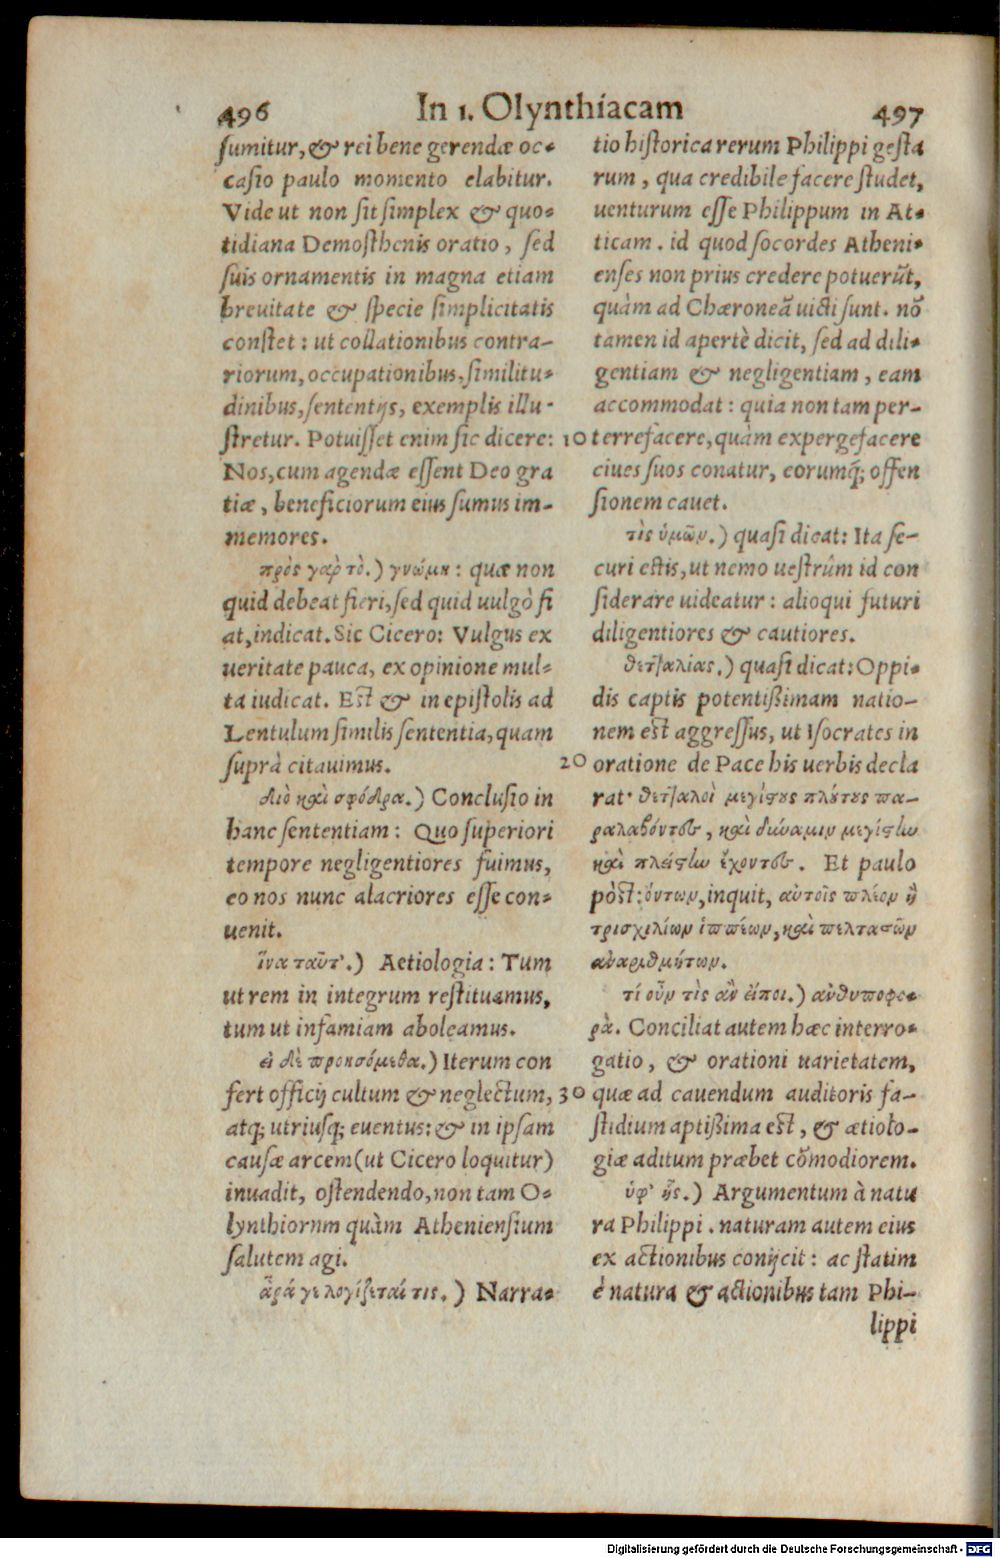 496 In 1. Olynthiacam 497
sumitur, & rei bene gerendæ oc-
casio paulo momento elabitur.
Vide ut non sit simplex & quo-
tidiana Demosthenis oratio, sed
suis ornamentis in magna etiam
breuitate & specie simplicitatis
constet: ut collationibus contra-
riorum, occupationibus, similitu-
dinibus, sententijs, exemplis illu-
stretur. Potuisset enim sic dicere:
Nos, cum agendæ essent Deo gra
tiæ, beneficiorum eius sumus im-
memores.
πρὸς γὰρ τὸ.) γνώμη: quæ non
quid debeat fieri, sed quid uulgò fi
at, indicat. Sic Cicero: Vulgus ex
ueritate pauca, ex opinione mul-
ta iudicat. Est & in epistolis ad
Lentulum similis sententia, quam
suprà citauimus.
διὸ καὶ σφόδρα.) Conclusio in
hanc sententiam: Quo superiori
tempore negligentiores fuimus,
eo nos nunc alacriores esse con-
uenit.
ἵνα ταῦτ᾽.) Aetiologia: Tum
ut rem in integrum restituamus,
tum ut infamiam aboleamus.
εἰ δὲ προησόμεθα.) Iterum con
fert officij cultum & neglectum,
atq; utriusq; euentus: & in ipsam
causæ arcem (ut Cicero loquitur)
inuadit, ostendendo, non tam O-
lynthiornm quàm Atheniensium
salutem agi.
ἆρά γε λογίζεταί τις.) Narra-
tio historica rerum Philippi gesta
rum, qua credibile facere studet,
uenturum esse Philippum in At-
ticam. id quod socordes Atheni-
enses non prius credere potuerũt,
quàm ad Chæroneã uicti sunt. nõ
tamen id apertè dicit, sed ad dili-
gentiam & negligentiam, eam
accommodat: quia non tam per-
10 terrefacere, quàm expergefacere
ciues suos conatur, eorumq́; offen
sionem cauet.
τὶς ὑμῶν.) quasi dicat: Ita se-
curi estis, ut nemo uestrûm id con
siderare uideatur: alioqui futuri
diligentiores & cautiores.
θετταλίας.) quasi dicat: Oppi-
dis captis potentißimam natio-
nem est aggressus, ut Isocrates in
20 oratione de Pace his uerbis decla
rat· θετταλοὶ μεγίστους πλούτους πα-
ραλαβόντες, καὶ δύναμιν μεγίστην
καὶ πλείστην ἔχοντες. Et paulo
pòst: ὄντων, inquit, αὐτοῖς πλέον ἢ
τρισχιλίων ἱππέων, καὶ πελταστῶν
ἀναριθμήτων.
τί οὖν τὶς ἂν εἴποι.) ἀνθυποφο-
ρὰ. Conciliat autem hæc interro-
gatio, & orationi uarietatem,
30 quæ ad cauendum auditoris fa-
stidium aptißima est, & ætiolo-
giæ aditum præbet cõmodiorem.
ὑφ᾽ ἧς.) Argumentum à natu
ra Philippi. naturam autem eius
ex actionibus conijcit: ac statim
è natura & actionibus tam Phi-
lippi
Digitalisierung gefördert durch die Deutsche Forschungsgemeinschaft - DFG